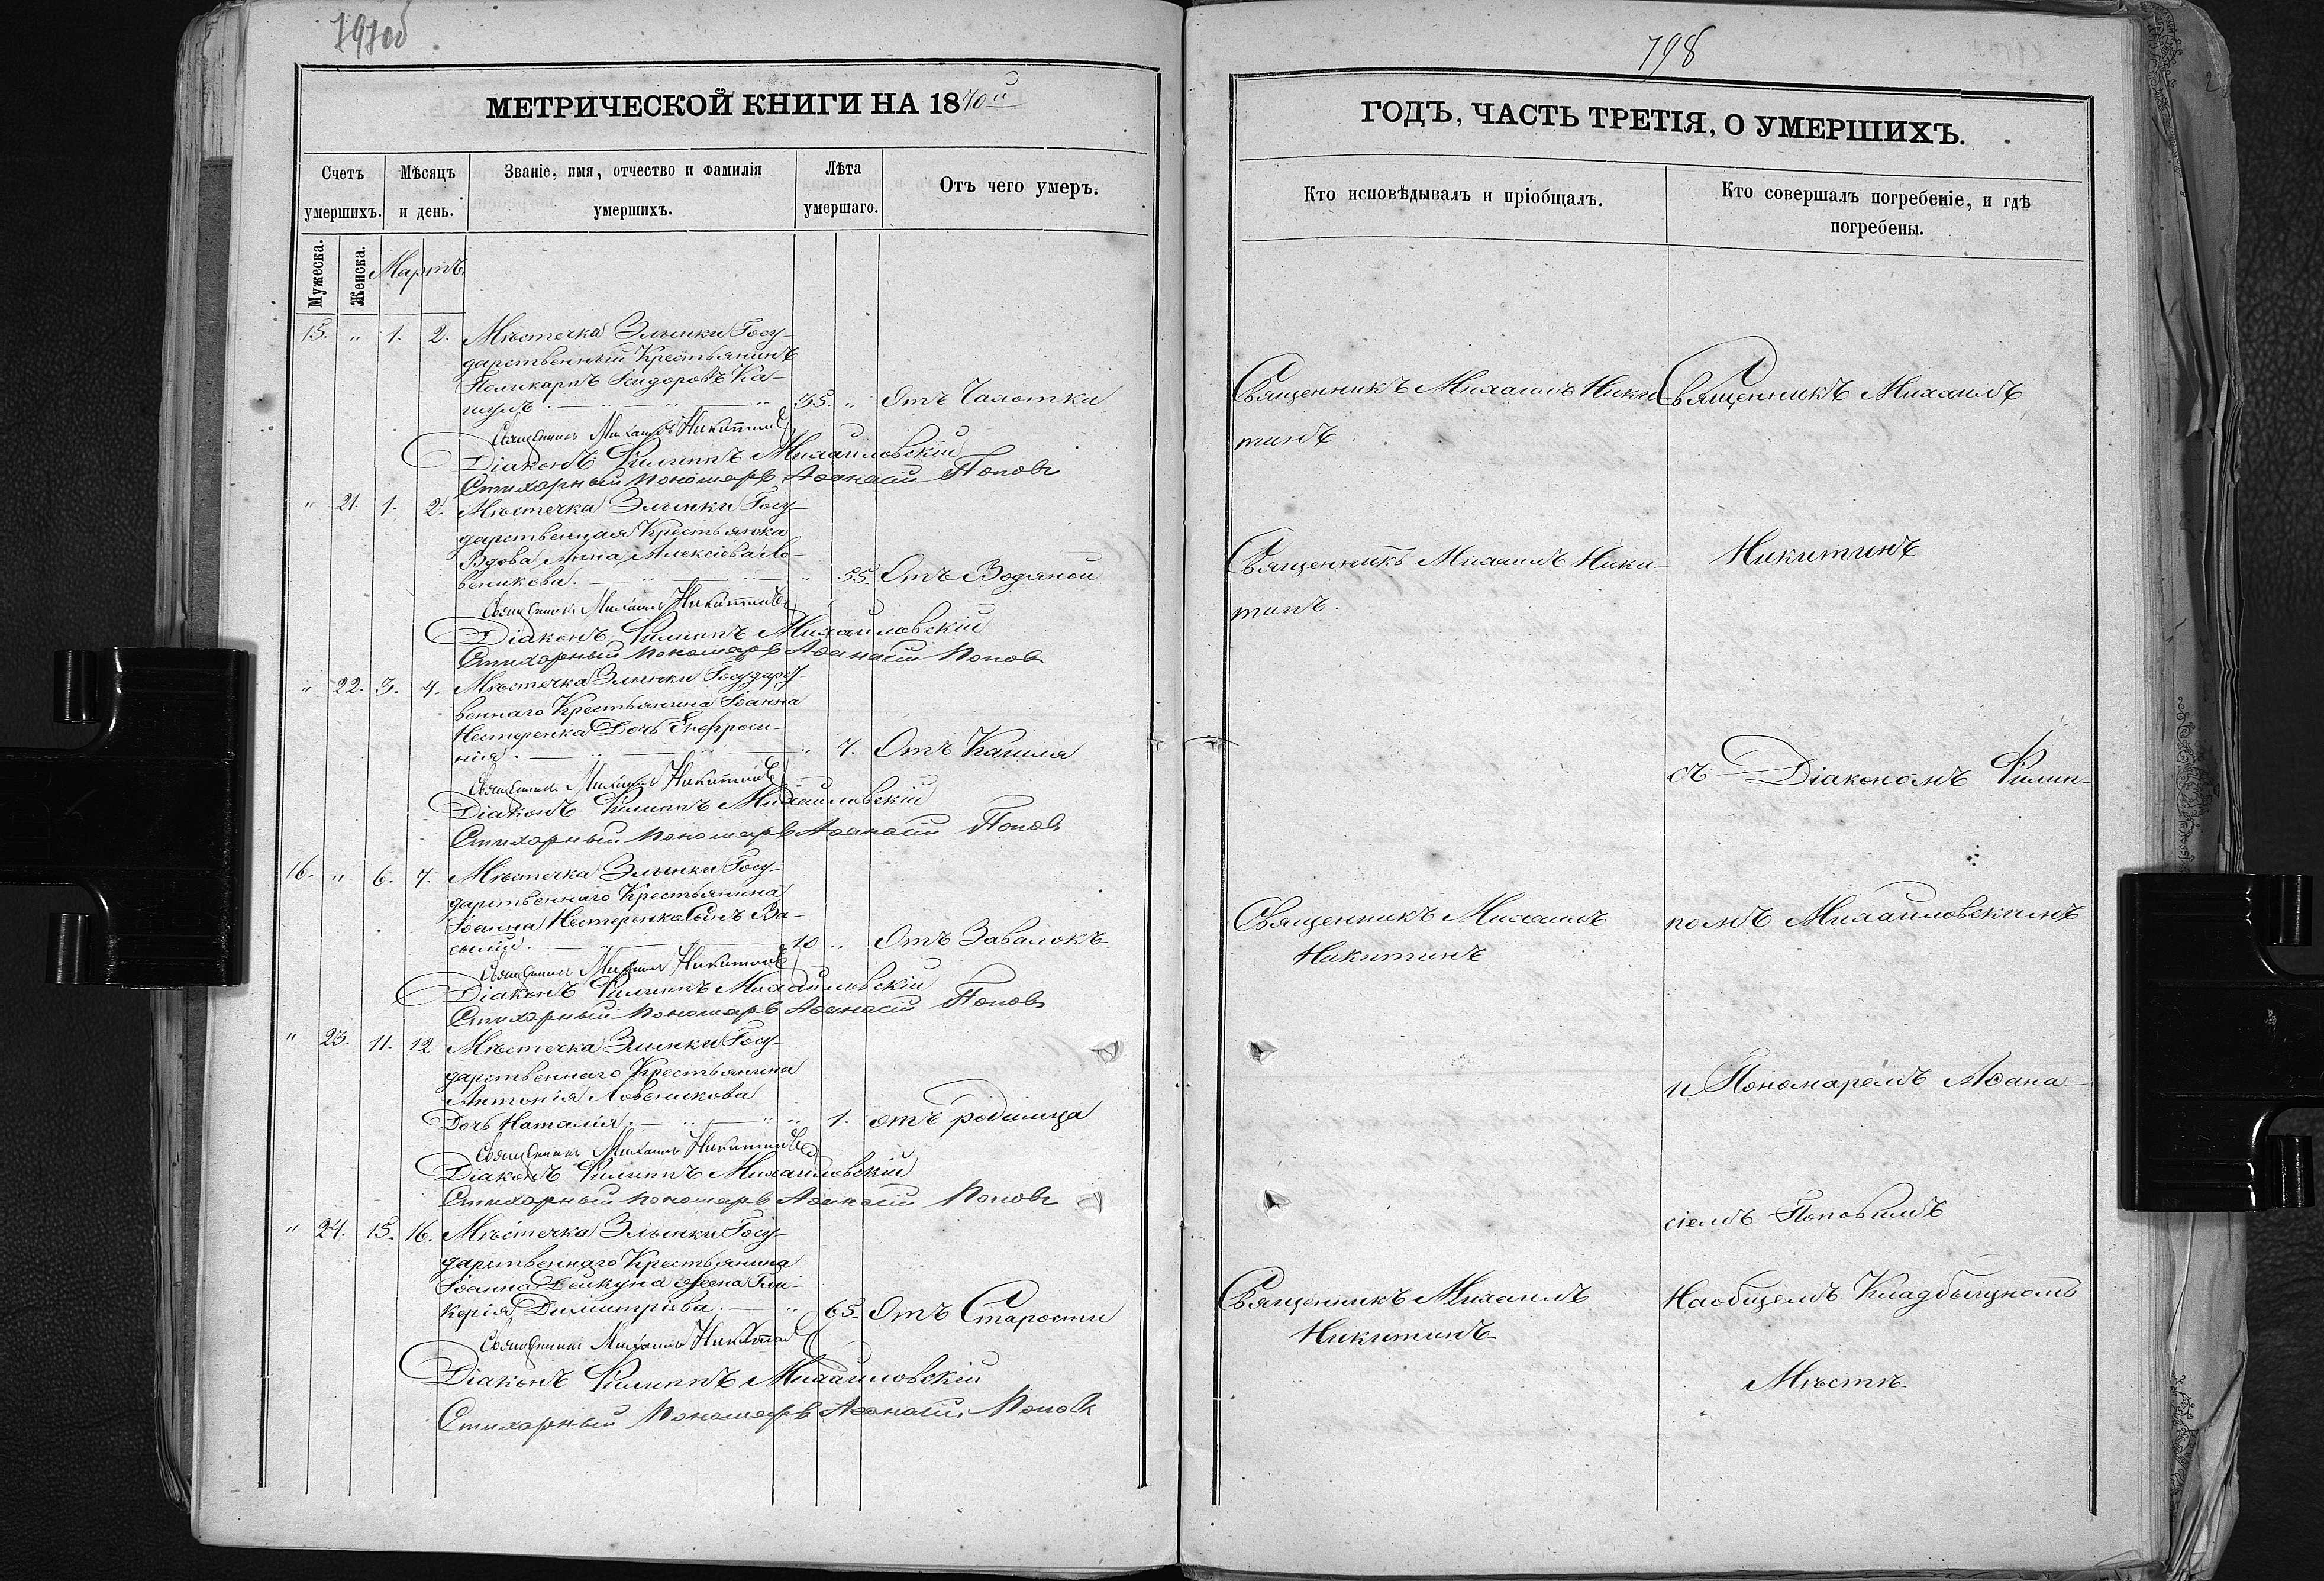 797об
МЕТРИЧЕСКОЙ КНИГИ НА 1870й
Счетъ умершихъ.
Мѣсяцъ и день.
Званіе, имя, отчество и фамилія умершихъ.
Лѣта умершаго.
Отъ чего умеръ.
Мужеска.
Женска.
Мартъ.
15. " 1. 2. Мѣстечка Злынки Госу-
дарственный Крестьянинъ
Поликарпъ Исидоровъ Ка-
35. " Отъ Чахотки
Священникъ Михаилъ Никитинъ
Діаконъ Филиппъ Михаиловскій
Стихарный Пономарь Аѳанасій Поповъ
" 21. 1. 2. Мѣстечка Злынки Госу-
дарственная Крестьянка
Вдова Анна Алексіева Ло-
веникова. " 55. Отъ Водяной
Священникъ Михаилъ Никитинъ
Діаконъ Филиппъ Михаиловскій
Стихарный Пономарь Аѳанасій Поповъ
" 22. 3. 4. Мѣстечка Злынки Государст-
веннаго Крестьянина Іоанна
Нестеренка Дочь Евфроси-
нія. " 7. Отъ Кашля
Священникъ Михаилъ Никитинъ
Діаконъ Филиппъ Михаиловскій
Стихарный Пономарь Аѳанасій Поповъ
16. " 6. 7. Мѣстечка Злынки Госу-
дарственнаго Крестьянина
Іоанна Нестеренка Сынъ Ва-
силій. 10 " Отъ Завалокъ
Священникъ Михаилъ Никитинъ
Діаконъ Филиппъ Михаиловскій
Стихарный Пономарь Аѳанасій Поповъ
" 23. 11. 12 Мѣстечка Злынки Госу-
дарственнаго Крестьянина
Антонія Ловеникова
Дочь Наталія. " 1. отъ родимца
Священникъ Михаилъ Никитинъ
Діаконъ Филиппъ Михаиловскій
Стихарный Пономарь Аѳанасій Поповъ
" 24. 15. 16. Мѣстечка Злынки Госу-
дарственнаго Крестьянина
Іоанна Дейкуна жена Гли-
керія Димитріева. " 65. Отъ Старости
Священникъ Михаилъ Никитинъ
Діаконъ Филиппъ Михаиловскій
Стихарный Пономарь Аѳанасій Поповъ
798
ГОДЪ, ЧАСТЬ ТРЕТІЯ, О УМЕРШИХЪ.
Кто исповѣдывалъ и пріобщалъ.
Кто совершалъ погребеніе, и гдѣ погребены.
Священникъ Михаилъ Ники
тинъ
Священникъ Михаилъ Ники-
тинъ.
Священникъ Михаилъ
Никитинъ
Священникъ Михаилъ
Никитинъ
Священникъ Михаилъ
Никитинъ
съ Діакономъ Филип-
помъ Михаиловскимъ
и Пономаремъ Аѳана-
сіемъ Поповымъ
На общемъ Кладбищномъ
Мѣстѣ.